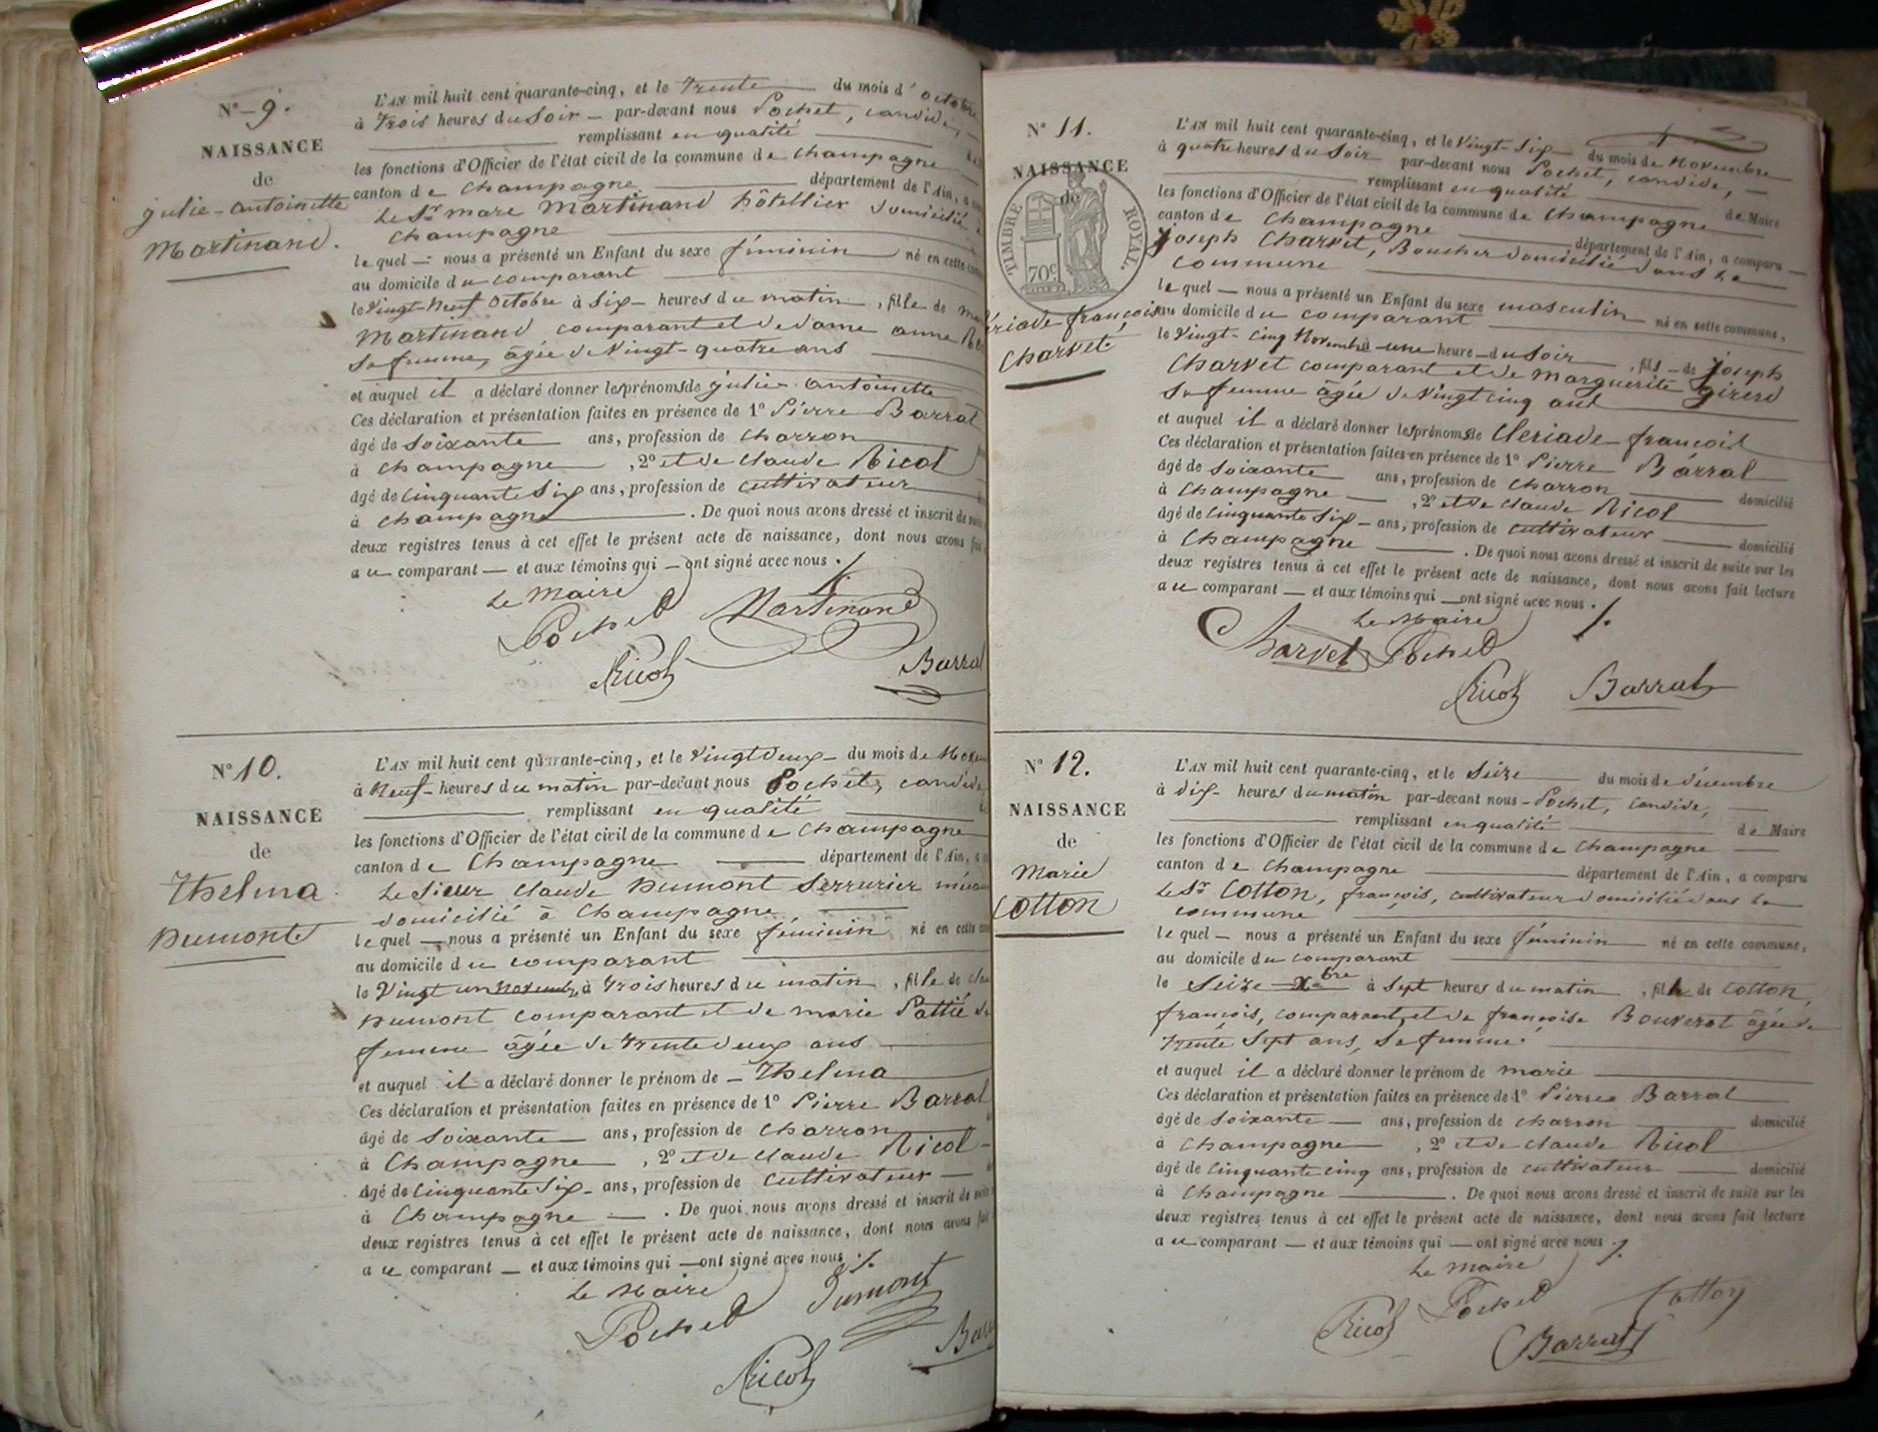 N° 9.
NAISSANCE
de
julie-antoinette
Martinand.
L'AN mil huit cent quarante-cinq, et le Trente du mois d'octobre
à Trois heures du Soir par-devant nous Pochet, candide,
remplissant en qualité
les fonctions d'Officier de l'état civil de la commune de Champagne
canton de Champagne département de l'Ain, a
Le Sr marc Martinand hôtellier domicilié
Champagne
lequel nous a présenté un Enfant du sexe féminin né en cette
au domicile du comparant
le Vingt-Neuf Octobre à Six heures du matin, fille de
Martinand comparant et de dame anne
Sa femme, âgée de Vingt-quatre ans
et auquel il a déclaré donner les prénoms de julie antoinette
Ces déclaration et présentation faites en présence de 1° Pierre Barrat
âgé de Soixante ans, profession de Charron
à Champagne, 2° et de Claude Ricol
âgé de Cinquante Six ans, profession de cultivateur
à Champagne. De quoi nous avons dressé et inscrit de
deux registres tenus à cet effet le présent acte de naissance, dont nous avons fait
au comparant et aux témoins qui ont signé avec nous ./.
Le Maire
Pochet Martinand
Ricol Barrat
N° 10.
NAISSANCE
de
Thelma
Dumont
L'AN mil huit cent quarante-cinq, et le Vingt deux du mois de
à Neuf heures du matin par-devant nous Pochet, candide,
remplissant en qualité
les fonctions d'Officier de l'état civil de la commune de Champagne
canton de Champagne département de l'Ain, a
Le Sieur Claude Dumont Serrurier
domicilié à Champagne
lequel nous a présenté un Enfant du sexe féminin né en cette
au domicile du comparant
le Vingt un Novembre à Trois heures du matin, fille de
Dumont comparant et de marie Pattié
femme âgée de Trente deux ans
et auquel il a déclaré donner le prénom de Thelma
Ces déclaration et présentation faites en présence de 1° Pierre Barrat
âgé de Soixante ans, profession de Charron
à Champagne, 2° et de Claude Ricol
âgé de Cinquante Six ans, profession de cultivateur
à Champagne. De quoi nous avons dressé et inscrit de
deux registres tenus à cet effet le présent acte de naissance, dont nous avons fait
au comparant et aux témoins qui ont signé avec nous ./.
Le Maire
Pochet Dumont
Ricol
N° 11.
NAISSANCE
de
TIMBRE ROYAL.
70c
françois
Charvet
L'AN mil huit cent quarante-cinq, et le Vingt-Six du mois de Novembre
à quatre heures du Soir par-devant nous Pochet, candide,
remplissant en qualité de Maire
les fonctions d'Officier de l'état civil de la commune de Champagne
canton de Champagne département de l'Ain, a comparu
Joseph Charvet, Boucher domicilié dans la
Commune
lequel nous a présenté un Enfant du sexe masculin né en cette commune,
au domicile du comparant
le Vingt-Cinq Novembre à une heure du Soir, fils de Joseph
Charvet comparant et de Marguerite Girerd
Sa femme âgée de Vingt cinq ans
et auquel il a déclaré donner les prénoms de Cleriade-françois
Ces déclaration et présentation faites en présence de 1° Pierre Barrat
âgé de Soixante ans, profession de Charron domicilié
à Champagne, 2° et de Claude Ricol
âgé de Cinquante Six ans, profession de Cultivateur domicilié
à Champagne. De quoi nous avons dressé et inscrit de suite sur les
deux registres tenus à cet effet le présent acte de naissance, dont nous avons fait lecture
au comparant et aux témoins qui ont signé avec nous ./.
Le Maire
Charvet Pochet
Ricol Barrat
N° 12.
NAISSANCE
de
Marie
Cotton
L'AN mil huit cent quarante-cinq, et le Seize du mois de décembre
à dix heures du matin par-devant nous Pochet, Candide,
remplissant en qualité de Maire
les fonctions d'Officier de l'état civil de la commune de Champagne
canton de Champagne département de l'Ain, a comparu
Le Sr Cotton, françois, cultivateur domicilié dans la
commune
lequel nous a présenté un Enfant du sexe féminin né en cette commune,
au domicile du comparant
le Seize Xbre à Sept heures du matin, fille de Cotton,
françois, comparant, et de françoise Bouverot âgée de
trente Sept ans, Sa femme
et auquel il a déclaré donner le prénom de marie
Ces déclaration et présentation faites en présence de 1° Pierre Barrat
âgé de Soixante ans, profession de charron domicilié
à Champagne, 2° et de Claude Ricol
âgé de Cinquante cinq ans, profession de cultivateur domicilié
à Champagne. De quoi nous avons dressé et inscrit de suite sur les
deux registres tenus à cet effet le présent acte de naissance, dont nous avons fait lecture
au comparant et aux témoins qui ont signé avec nous ./.
Le Maire
Ricol Pochet Cotton
Barrat